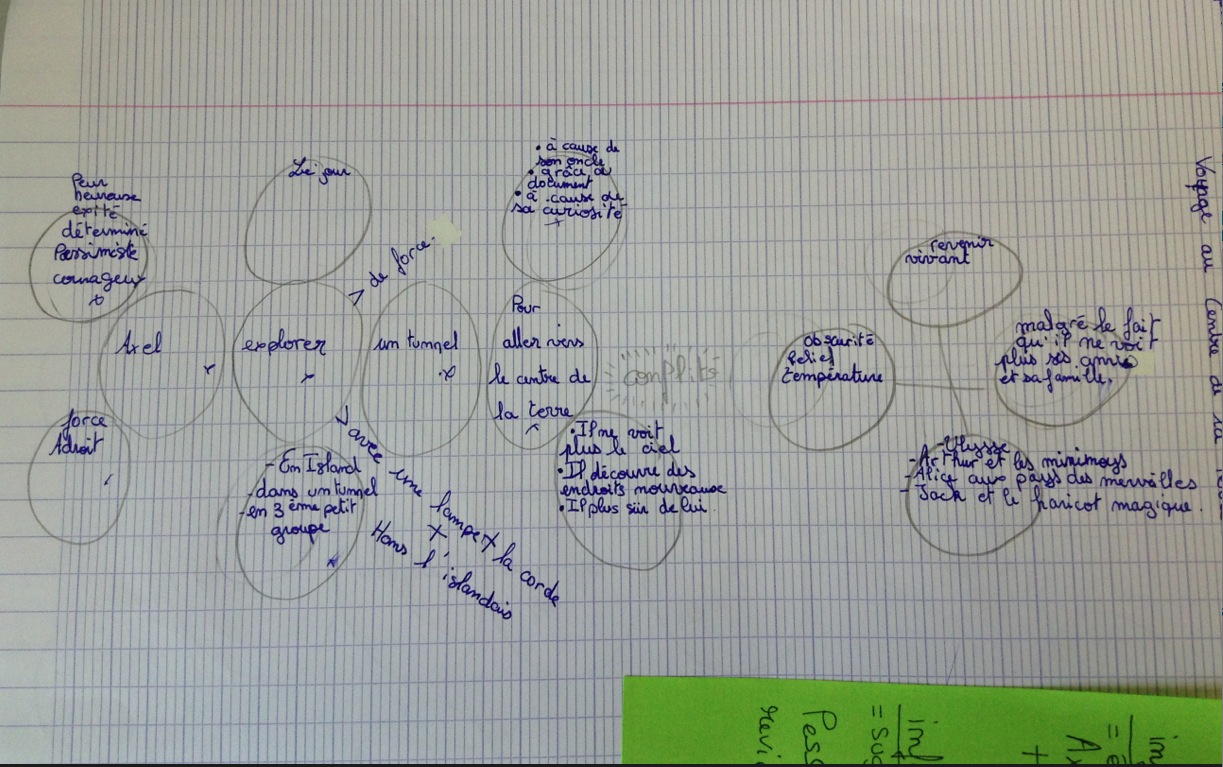 Peur
heureuse
exité
déterminé
Pessimiste
courageux
Axel
force
Adroit
Le jour
explorer
- En Island
- dans un tunnel
- en 3 ème petit
groupe
> de force.
> avec une lampe + la corde
+
Hans l'islandais
un tunnel
• à cause de
son oncle
• grâce au
document
• à cause de
sa curiosité
+
Pour
aller vers
le centre de
la terre
• Il ne voit
plus le ciel
• Il découvre des
endroits nouveaux
• Il plus sûr de lui.
conflits
obscurité
relief
température
revenir
vivant
malgré le fait
qu'il ne voit
plus ses amis
et sa famille.
- Ulysse
- Arthur et les minimoys
- Alice aux pays des merveilles
- Jack et le haricot magique.
Voyage au Centre de
im
= sug
Pess
revi
im
Ax
+